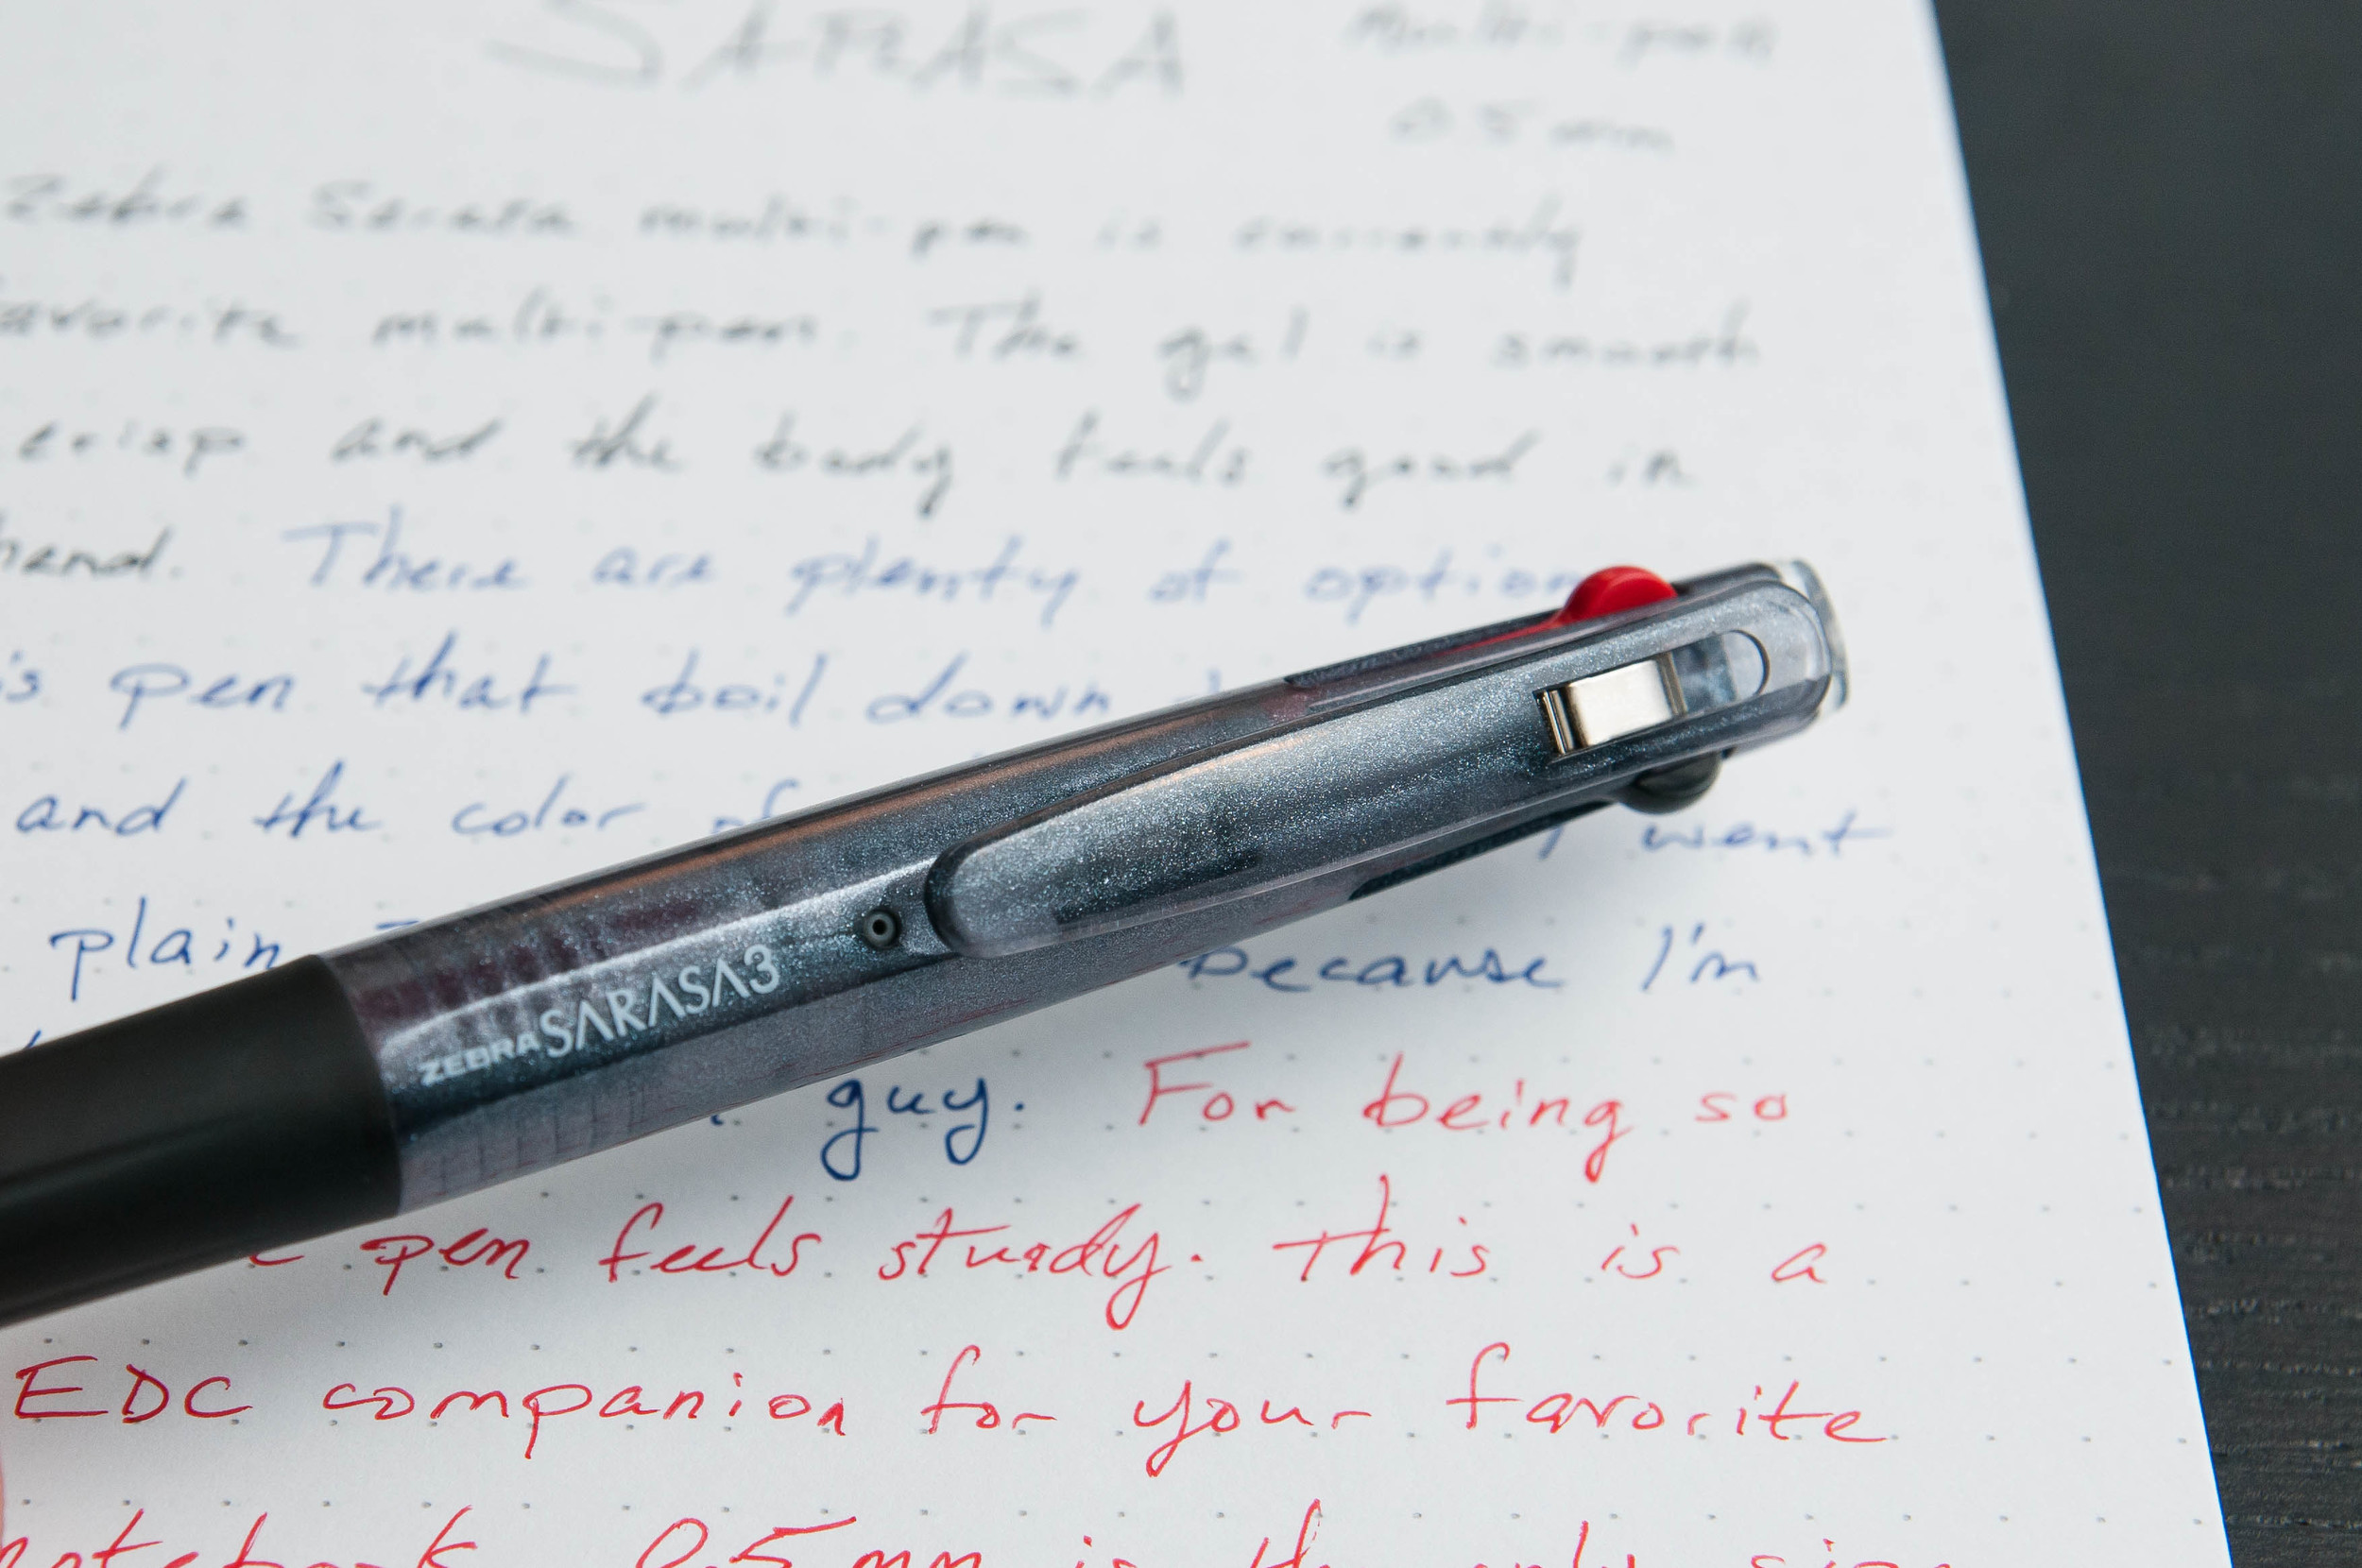 SARASA Multi-pen
0.5 mm
Zebra Sarasa multi-pen is currently
favorite multi-pen. The gel is smooth
crisp and the body feels good in
hand. There are plenty of option
is pen that boil down
and the color of I went
plain because I'm
guy. For being so
pen feels sturdy. This is a
EDC companion for your favorite
notebook. 0.5 mm is the only size
ZEBRA SARASA3